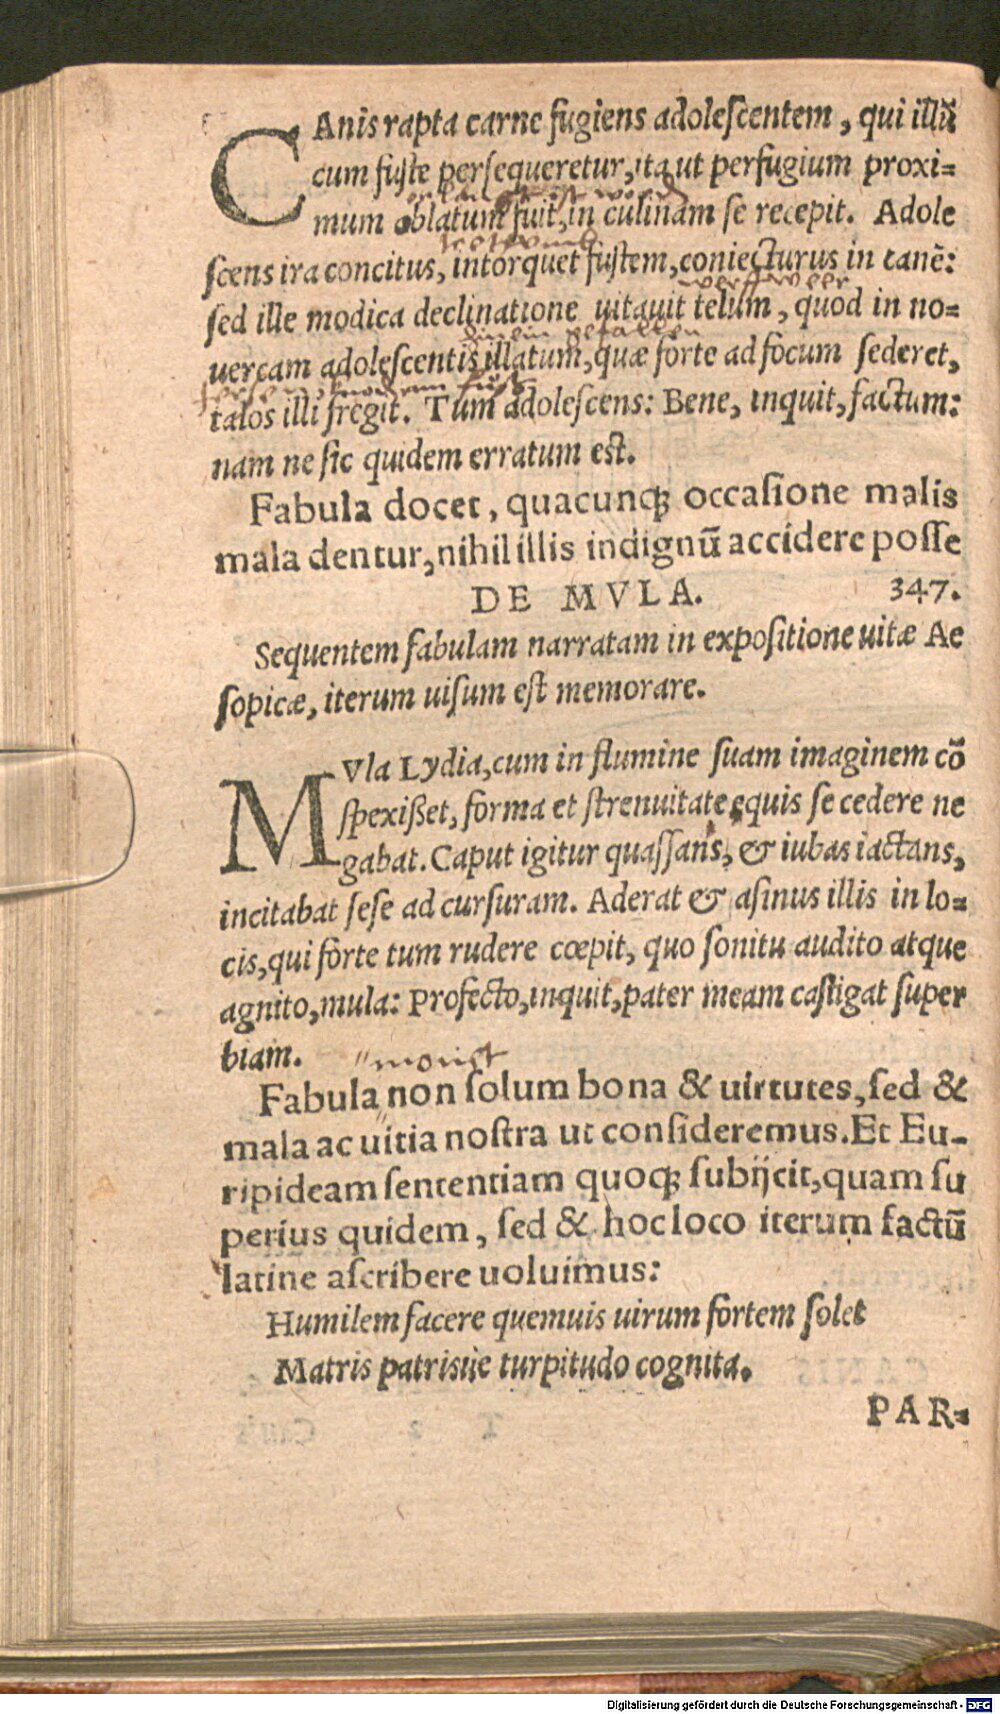 CAnis rapta carne fugiens adoleſcentem, qui illũ
cum fuſte perſequeretur, ita ut perfugium proxi=
mum oblatum fuit, in culinam ſe recepit. Adole
ſcens ira concitus, intorquet fuſtem, coniecturus in canẽ:
ſed ille modica declinatione uitauit telum, quod in no=
uercam adoleſcentis illatum, quæ forte ad focum ſederet,
talos illi fregit. Tum adoleſcens: Bene, inquit, factum:
nam ne ſic quidem erratum eſt.
Fabula docet, quacunqꝫ occaſione malis
mala dentur, nihil illis indignũ accidere poſſe
DE MVLA. 347.
Sequentem fabulam narratam in expoſitione uitæ Ae
ſopicæ, iterum uiſum eſt memorare.
MVla Lydia, cum in flumine ſuam imaginem cõ
ſpexiſſet, forma et ſtrenuitate equis ſe cedere ne
gabat. Caput igitur quaſſans, & iubas iactans,
incitabat ſeſe ad curſuram. Aderat & aſinus illis in lo=
cis, qui forte tum rudere cœpit, quo ſonitu audito atque
agnito, mula: Profecto, inquit, pater meam caſtigat ſuper
biam.
monet
Fabula non ſolum bona & uirtutes, ſed &
mala ac uitia noſtra ut conſideremus. Et Eu-
ripideam ſententiam quoqꝫ ſubijcit, quam ſu
perius quidem, ſed & hoc loco iterum factũ
latine aſcribere uoluimus:
Humilem facere quemuis uirum fortem ſolet
Matris patrisúe turpitudo cognita.
PAR=
Digitalisierung gefördert durch die Deutsche Forschungsgemeinschaft - DFG